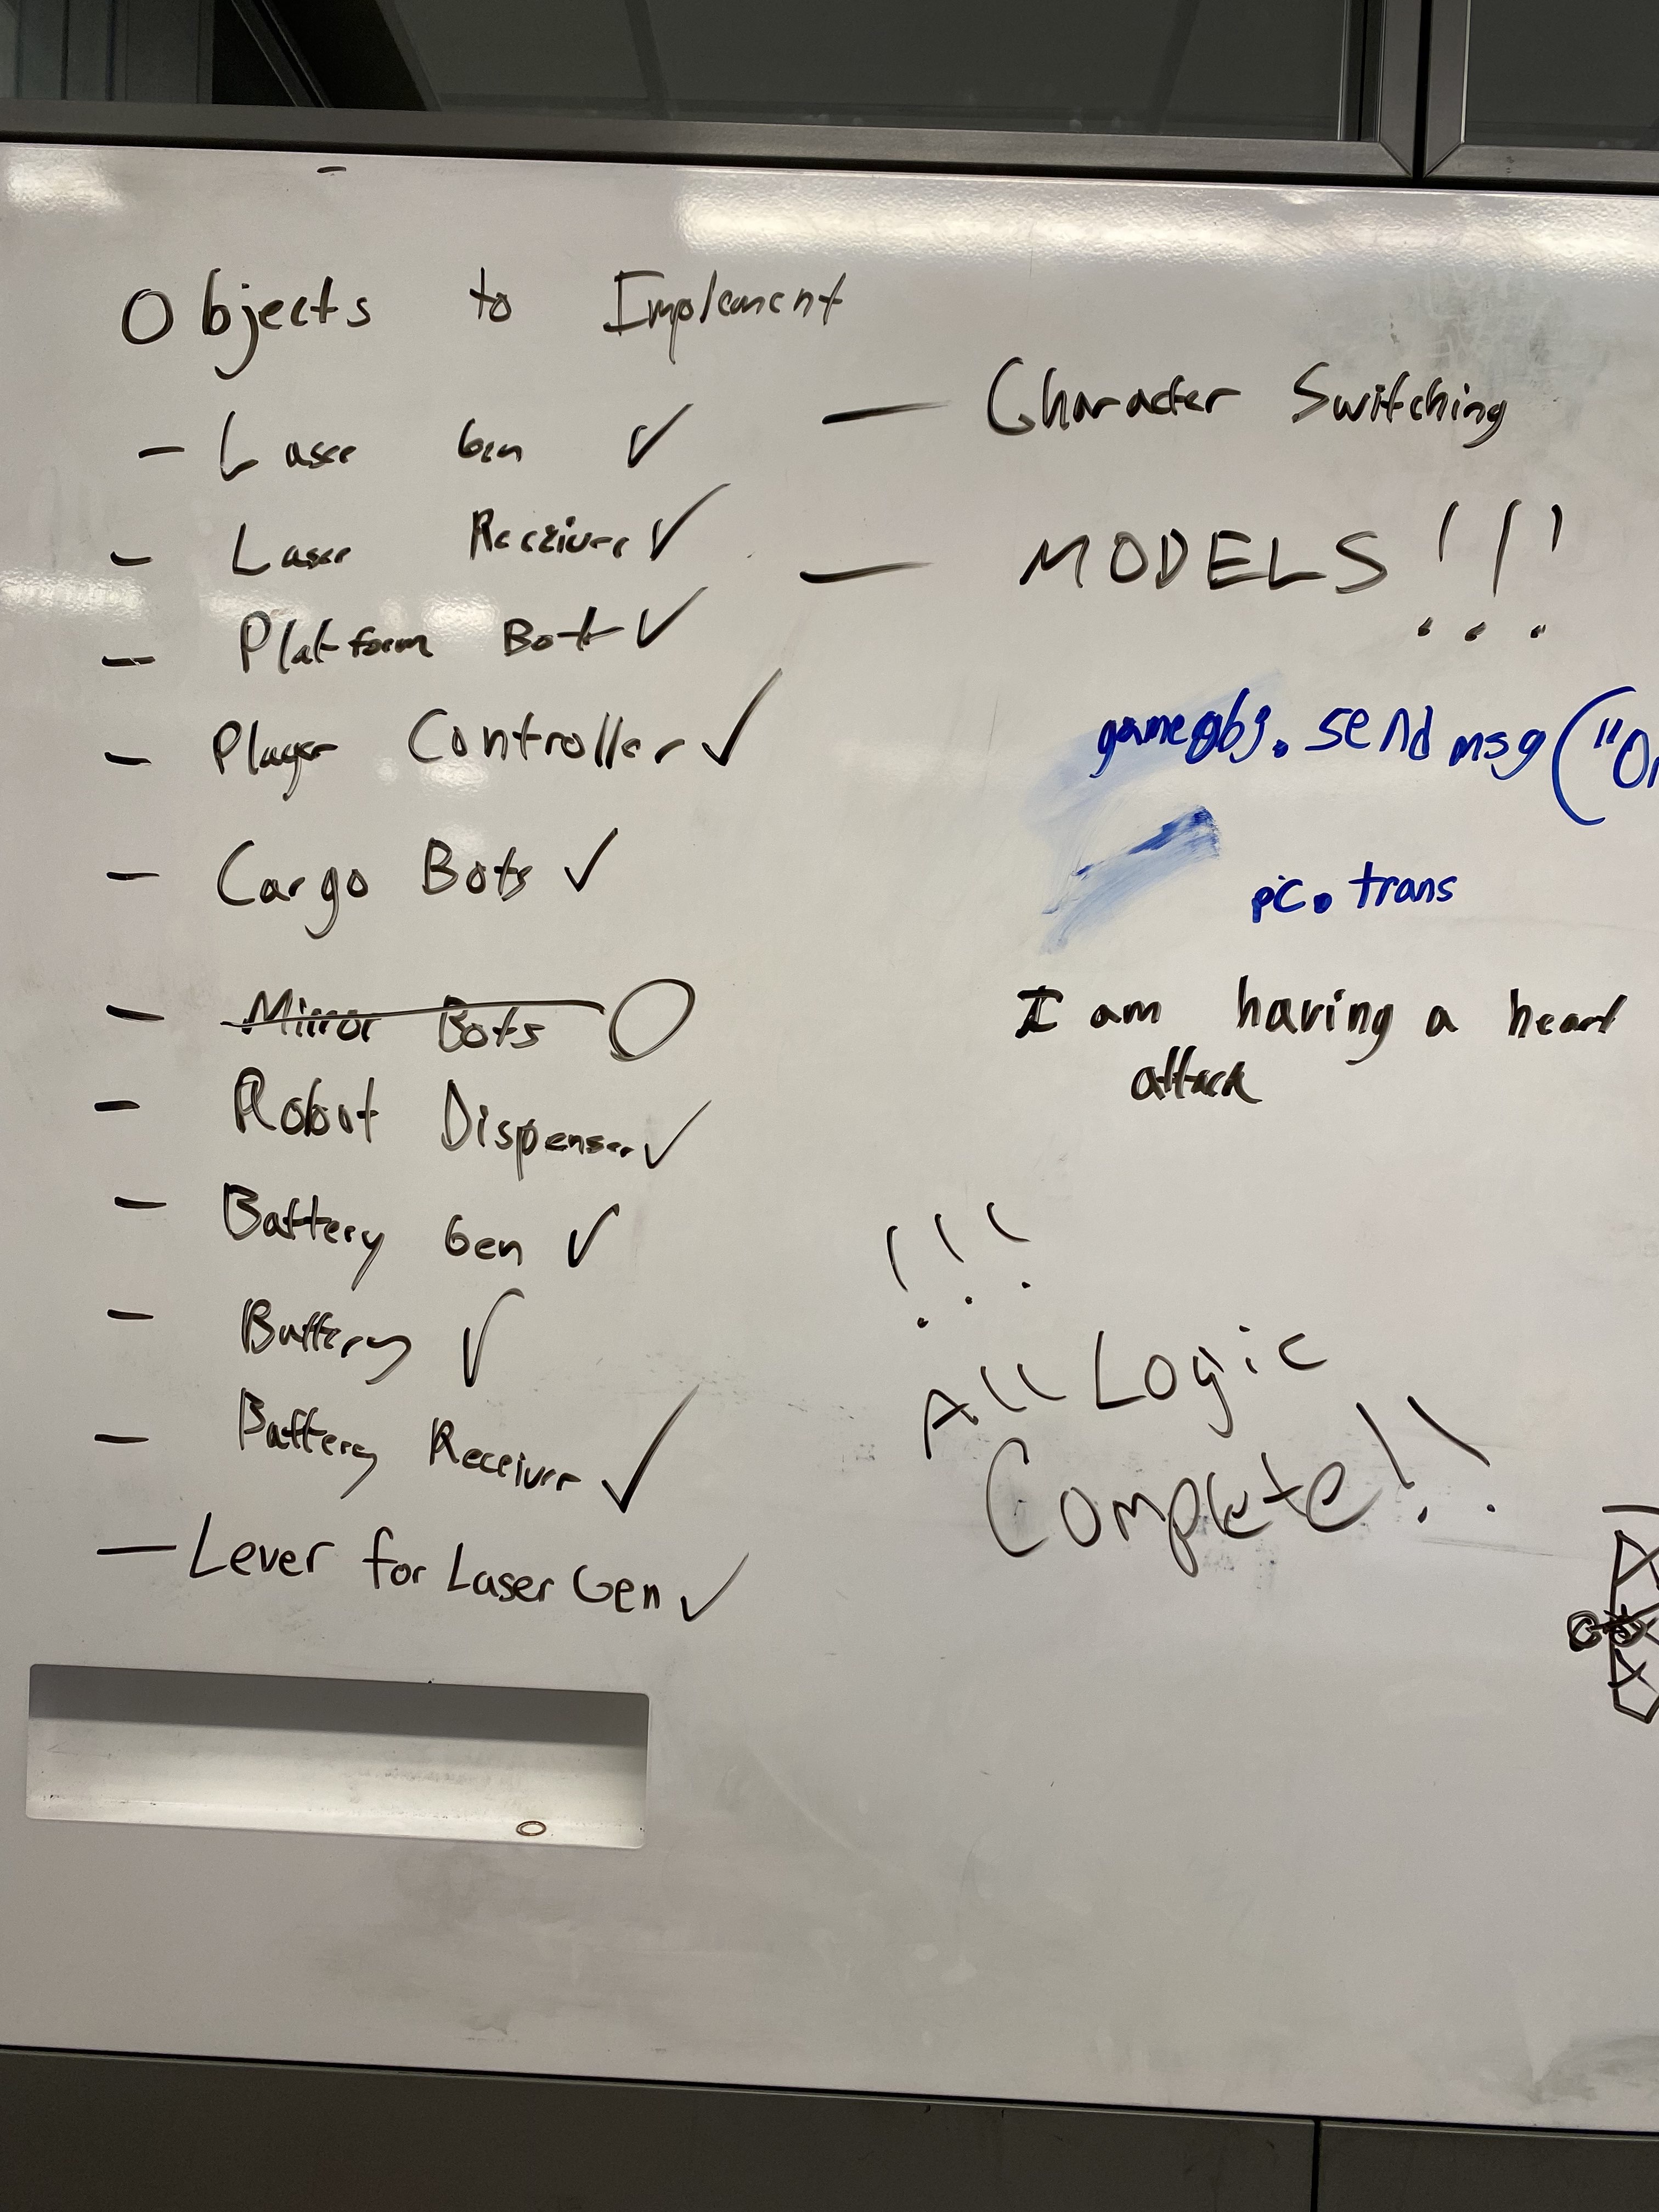 Objects to Implement
- Laser Gen ✓
- Laser Receiver ✓
- Platform Bot ✓
- Player Controller ✓
- Cargo Bots ✓
- Mirror Bots
- Robot Dispenser ✓
- Battery Gen ✓
- Battery ✓
- Battery Receiver ✓
- Lever for Laser Gen ✓
- Character Switching
- MODELS!!!
gameobj.sendmsg("On
pc.trans
I am having a heart
attack
!!!
All Logic
Complete!!